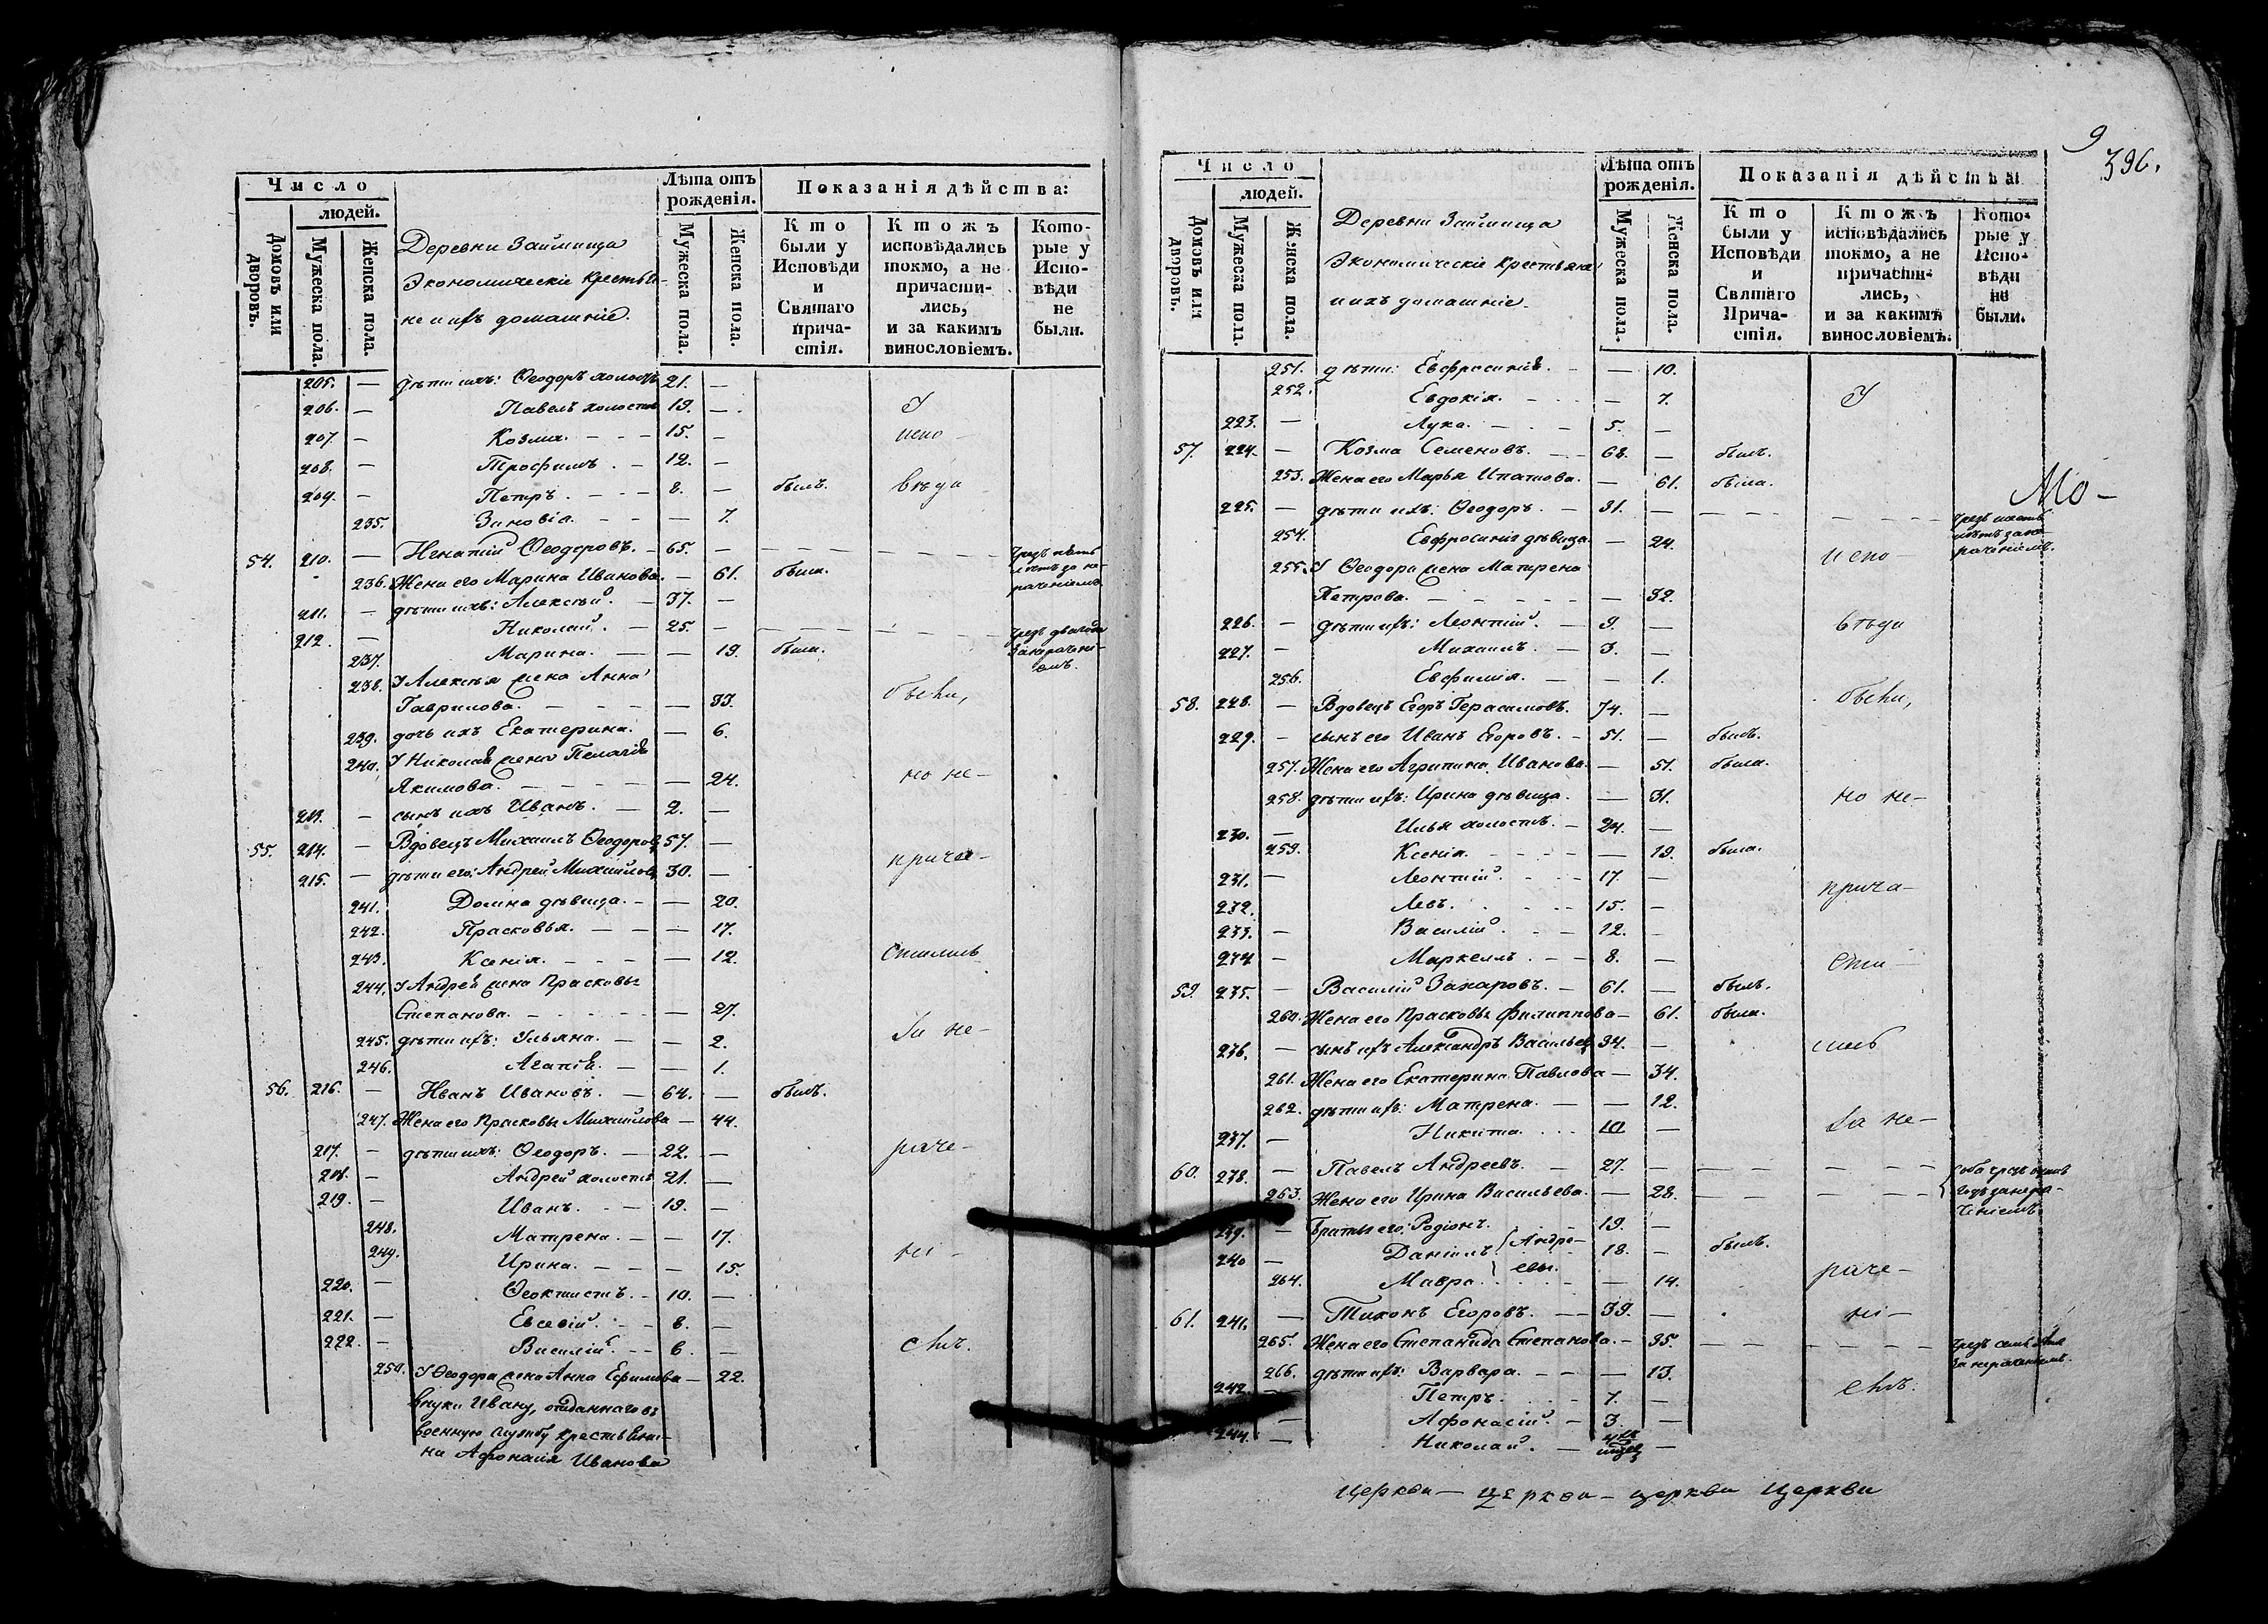 Число
людей.
Домовъ или дворовъ.
Мужеска пола.
Женска пола.
Деревни Займища
Экономическіе крестья-
не и ихъ домашніе.
Лѣта отъ рожденія.
Мужеска пола.
Женска пола.
Показанія дѣйства:
Кто были у Исповѣди и Святаго причастія.
Ктожъ исповѣдались токмо, а не причастились, и за какимъ винословіемъ.
Которые у Исповѣди не были.
205. — дѣти ихъ: Ѳеодоръ холостъ 21. —
206. — Павелъ холостъ 19. — У
207. — Козма. — 15. — испо-
208. — Трофимъ. — 12. —
209. — Петръ. — 8. — былъ. вѣди
235. Зиновіа. — — 7.
54. 210. — Игнатій Ѳеодоровъ. — 65. — чрезъ пять лѣтъ за не-раченіемъ
236. Жена его Марина Иванова. — 61. была.
211. — дѣти ихъ: Алексѣй. — 37. —
212. — Николай. — 25. — чрезъ два года за нерачені-емъ.
237. Марина. — — 19. была.
238. У Алексѣя жена Анна
Гаврилова. — — 33. были,
239. дочь ихъ Екатерина. — 6.
240. У Николая жена Пелагія
Якимова. — — 24. но не-
213. — сынъ ихъ Иванъ. — 2. —
55. 214. — Вдовецъ Михаилъ Ѳеодоровъ 57. —
215. — дѣти его: Андрей Михайловъ 30. — прича-
241. Домна дѣвица. — — 20.
242. Прасковья. — — 17.
243. Ксенія. — — 12. стились
244. У Андрея жена Прасковья
Степанова. — — 27.
245. дѣти ихъ: Ульяна. — — 2. за не-
246. Агапія. — — 1.
56. 216. — Иванъ Ивановъ. — 64. — былъ.
247. Жена его Прасковья Михайлова — 44.
217. — дѣти ихъ: Ѳеодоръ. — 22. — раче-
218. — Андрей холостъ 21. —
219. — Иванъ. — 19. —
248. Матрена. — — 17.
249. Ирина. — — 15. ні-
220. — Ѳеоктистъ. — 10. —
221. — Евсевій. — 8. —
222. — Василій. — 6. — емъ.
250. У Ѳеодора жена Анна Ефимова — 22.
внуки Ивану, отданнаго въ
военную службу крестьяни-
на Афонасія Иванова
9
396.
Число
людей.
Домовъ или дворовъ.
Мужеска пола.
Женска пола.
Деревни Займища
Экономическіе крестьяне
и ихъ домашніе.
Лѣта отъ рожденія.
Мужеска пола.
Женска пола.
Показанія дѣйства
Кто были у Исповѣди и Святаго Причастія.
Ктожъ исповѣдались токмо, а не причастились, и за какимъ винословіемъ.
Которые у Исповѣди не были.
251. дѣти: Евфросинія. — — 10.
252. Евдокія. — — 7. У
223. — Лука. — 5. —
57. 224. — Козма Семеновъ. — 68. — былъ.
253. Жена его Марья Ипатова. — 61. была.
Мо-
225. — дѣти ихъ: Ѳеодоръ. — 31. — чрезъ шесть лѣтъ за не-раченіемъ.
254. Евфросинія дѣвица. — 24. испо-
255. У Ѳеодора жена Матрена
Петрова. — — 32.
226. — дѣти ихъ: Леонтій. — 9. — вѣди
227. — Михаилъ. — 3. —
256. Евфимія. — — 1.
58. 228. — Вдовецъ Егоръ Герасимовъ. 74. — были,
229. — сынъ его Иванъ Егоровъ. — 51. — былъ.
257. Жена его Агрипина Иванова. — 51. была.
258. дѣти ихъ: Ирина дѣвица. — 31. но не-
230. — Илья холостъ. — 24. —
259. Ксенія. — — 19. была.
231. — Леонтій. — 17. — прича-
232. Левъ. — 15. —
233. — Василій. — 12. —
234 — Маркеллъ. — 8. — сти-
59. 235. — Василій Захаровъ. — 61. — былъ.
260. Жена его Прасковья Филиппова — 61. была.
236. — сынъ ихъ Александръ Васильевъ 34. — лись
261. Жена его Екатерина Павлова — 34.
262. дѣти ихъ: Матрена. — — 12.
237. — Никита. — 10 — за не-
60. 238. — Павелъ Андреевъ. — 27. — оба чрезъ одинъ годъ за нера-ченіемъ
263. Жена его Ирина Васильева. — 28.
239. — Братья его: Родіонъ. — 19. —
240 — Даніилъ Андре-евы. 18. — былъ.
264. Мавра. — — 14. раче-
61. 241. — Тихонъ Егоровъ. — 39. — ні-
265. Жена его Степанида Степанова. — 35. — чрезъ семь лѣтъ за нераченіемъ.
266. дѣти ихъ: Варвара. — — 13.
242. — Петръ. 7. — емъ.
— Афонасій. — 3. —
244. — Николай. —
Церкви — церкви — церкви Церкви